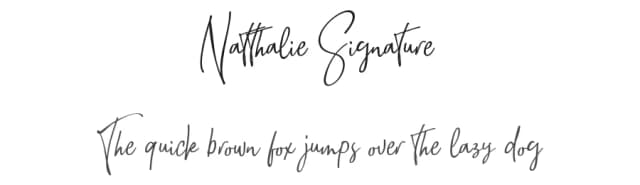 Natthalie Signature
The quick brown fox jumps over the lazy dog